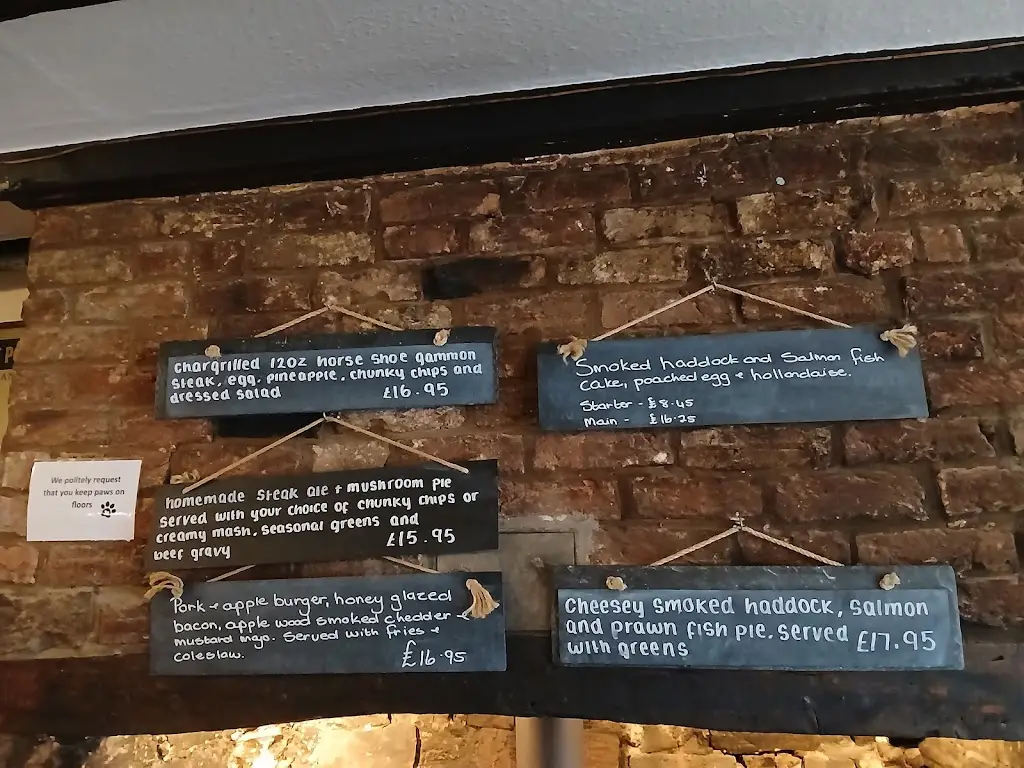 Chargrilled 12oz horse shoe gammon
steak, egg, pineapple, chunky chips and
dressed salad £16.95
Smoked haddock and Salmon fish
cake, poached egg + hollandaise.
Starter - £8.45
Main - £16.25
We politely request
that you keep paws on
floors
homemade steak ale + mushroom pie
served with your choice of chunky chips or
creamy mash, seasonal greens and
beef gravy £15.95
Pork + apple burger, honey glazed
bacon, apple wood smoked chedder +
mustard mayo. Served with fries +
coleslaw. £16.95
Cheesey smoked haddock, salmon
and prawn fish pie. served £17.95
with greens